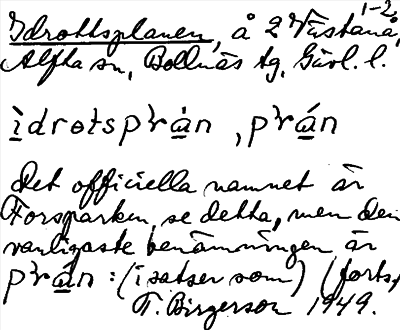 Idrottsplanen, å 2 Västana, 1-2,
Alfta sn, Bollnäs tg, Gävl. l.
ìdrotspʹràn, pʹrán
Det officiella namnet är
Forsparken, se detta, men den
vanligaste benämningen är
pʹrán: (i satser som) (forts,
T. Birgerson 1949.